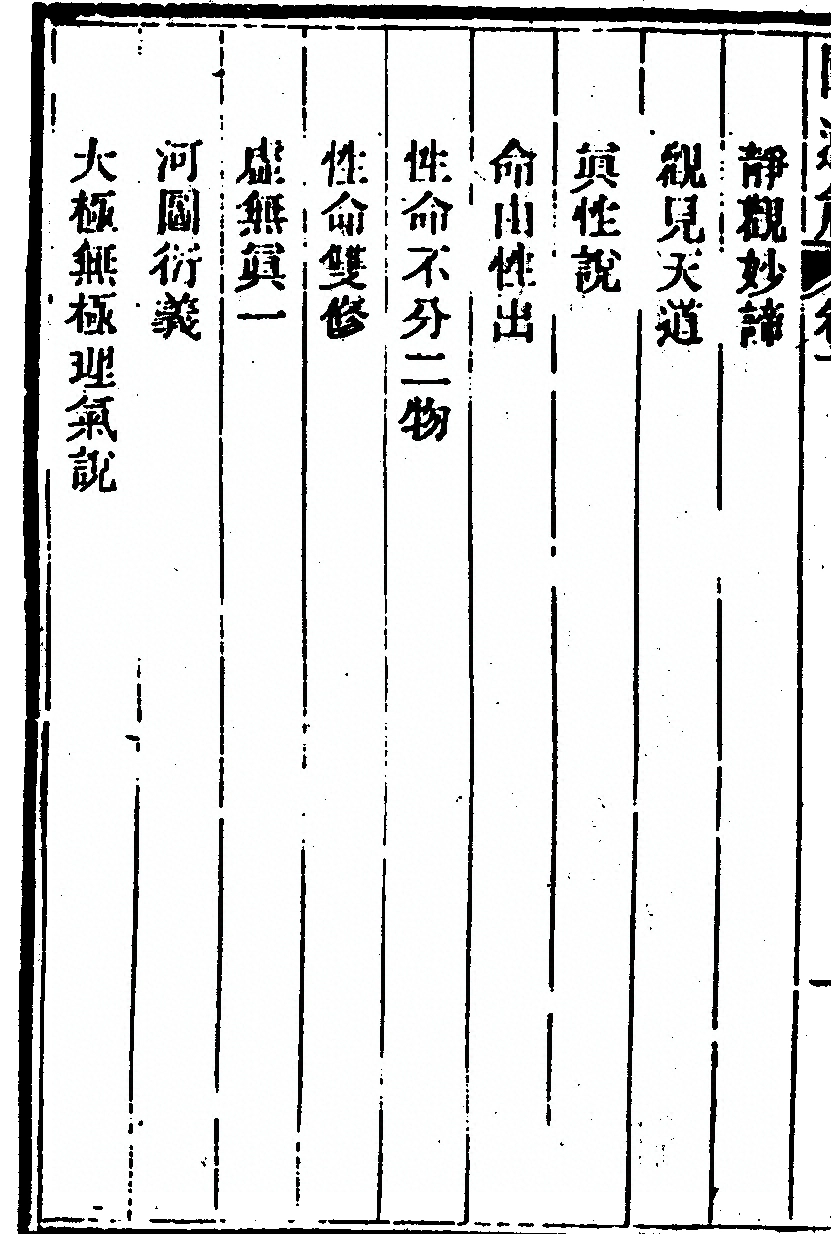 靜觀妙諦
觀見天道
眞性說
命由性出
性命不分二物
性命雙修
虛無眞一
河圖衍義
太極無極理氣說